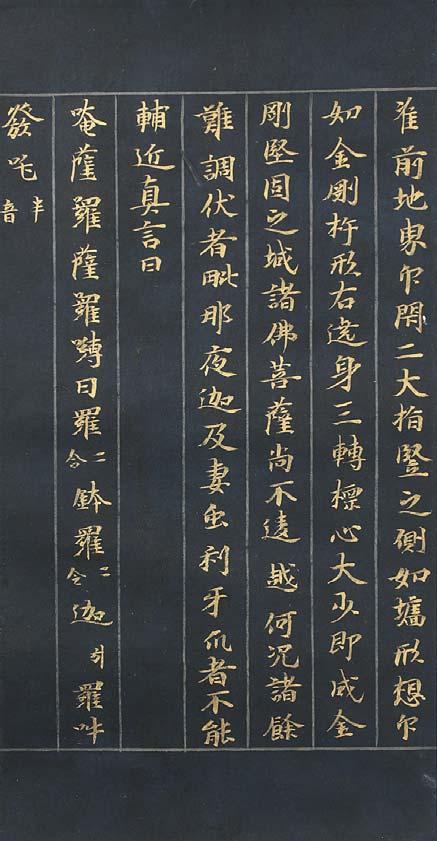 准前地界印開二大指竪之側如墻形想印
如金剛杵形右遶身三轉標心大少即成金
剛堅固之城諸佛菩薩尚不違越何况諸餘
難調伏者毗那夜迦及毒虫利牙爪者不能
輔近真言曰
唵薩羅薩羅嚩日羅二合鉢羅二合迦引羅吽
發吒半音